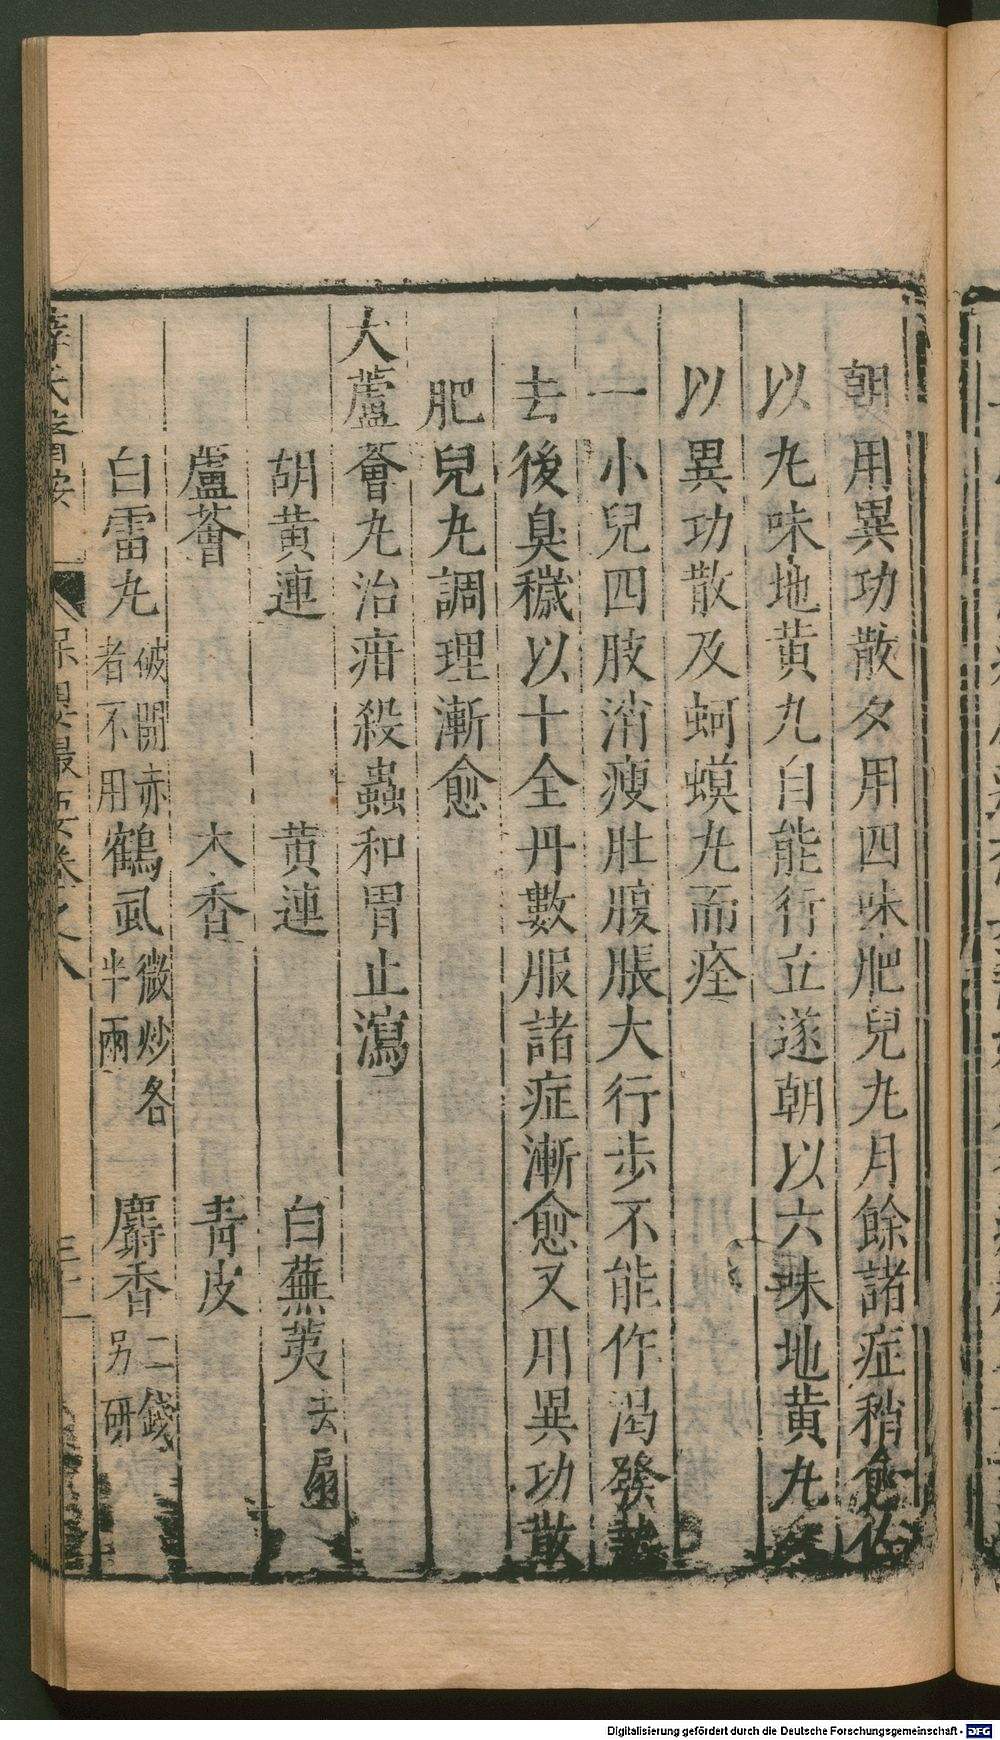 朝用異功散夕用四味肥兒丸月餘諸症稍愈佐
以九味地黄丸自能行立遂朝以六味地黄丸夕
以異功散及蚵蟆丸而痊
一小兒四肢消瘦肚腹脹大行步不能作渴發熱
去後臭穢以十全丹數服諸症漸愈又用異功散
肥兒丸調理漸愈
大蘆薈丸治疳殺蟲和胃止瀉
胡黄連 黄連 白蕪荑去扇
盧薈 木香 青皮
白雷丸破開赤者不用 鶴虱微炒各半兩 麝香二錢另研
薛氏醫按 保嬰最要卷之八
Digitalisierung gefördert durch die Deutsche Forschungsgemeinschaft - DFG